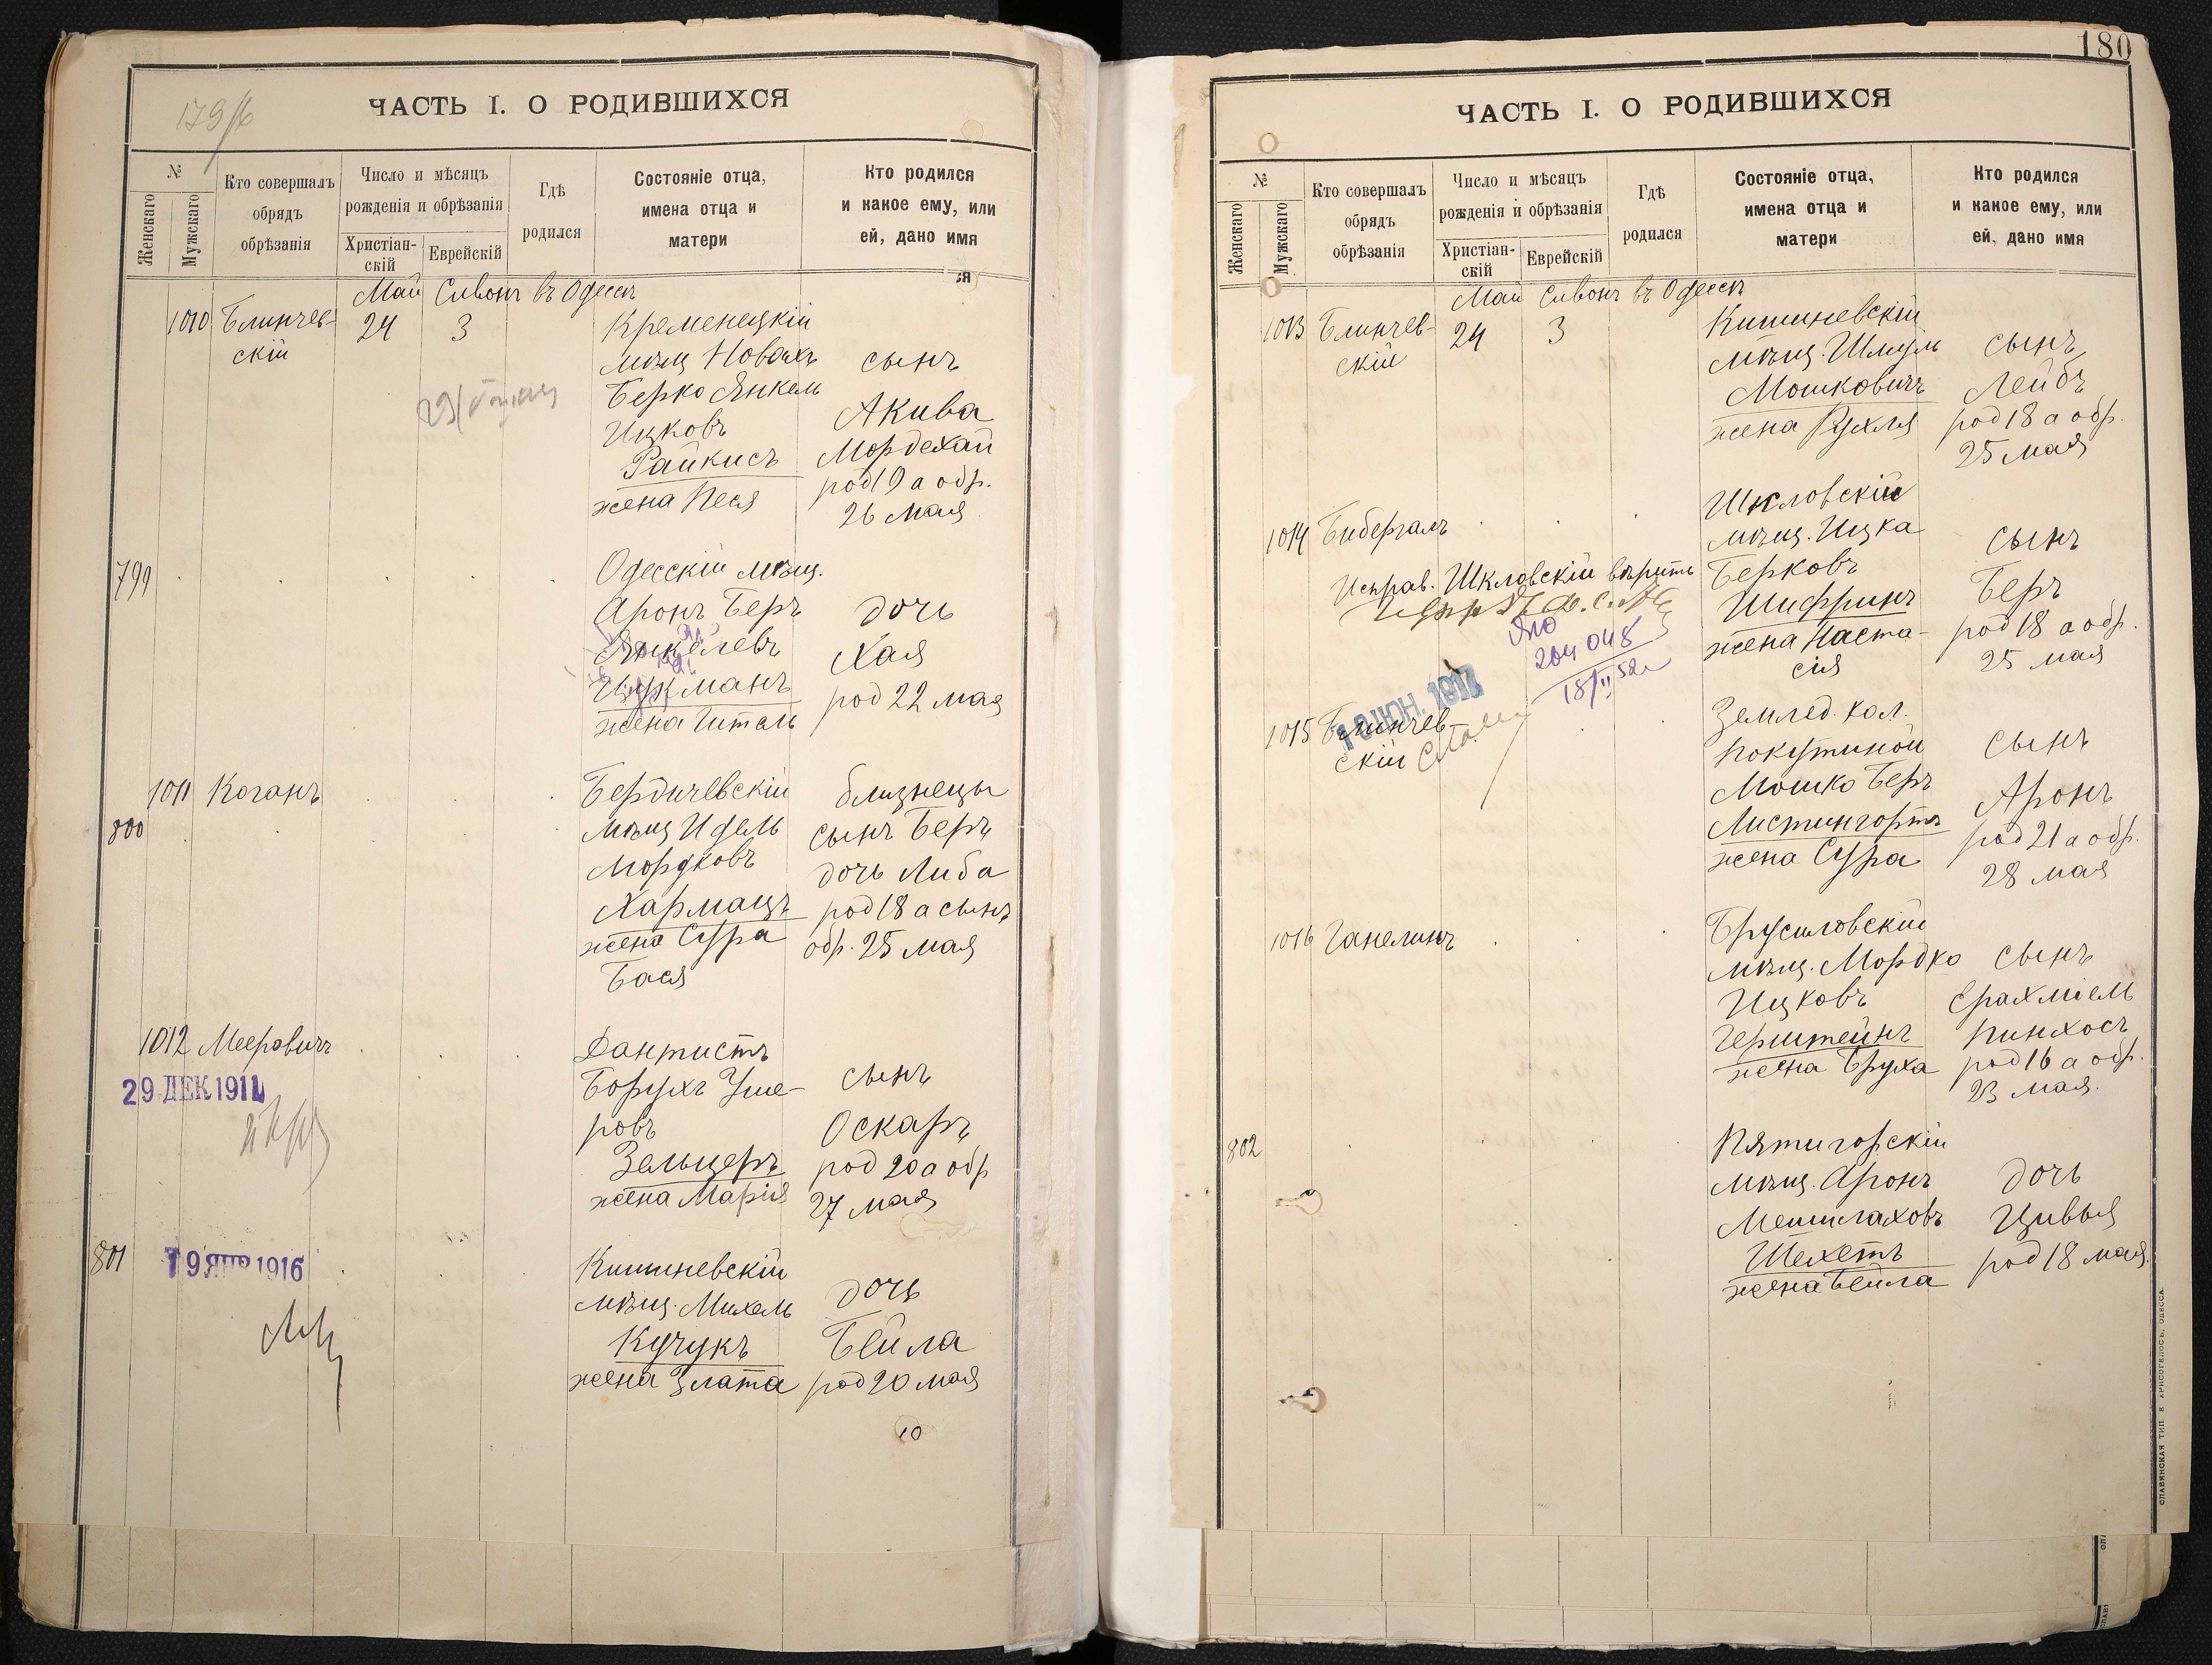 ЧАСТЬ I. О РОДИВШИХСЯ
№
Женскаго
Мужскаго
Кто совершалъ
обрядъ
обрѣзанія
Число и мѣсяцъ
рожденія и обрѣзанія
Христіан-
скій
Еврейскій
Гдѣ
родился
Состояніе отца,
имена отца и
матери
Кто родился
и какое ему, или
ей, дано имя
ся
Май Сивонъ въ Одессѣ
1010 Блинчев-
скій
24
3
Кременецкій
мѣщ Новахъ
Берко Янкель
Ицковъ
Райкисъ
жена Песя
сынъ
Акива
Мордехай
род 19 а обр.
26 мая
799
Одесскій мѣщ.
Аронъ Беръ
Янкелевъ
Цукманъ
жена Гитель
дочь
Хая
род 22 мая
1011 Коганъ
800
Бердичевскій
мѣщ Идель
Мордковъ
Хармацъ
жена Сура
Бася
близнецы
сынъ Беръ
дочь Либа
род 18 а сынъ
обр. 25 мая
1012 Мееровичъ
29 ДЕК 1911
Дантистъ
Борухъ Уше-
ровъ
Зельцеръ
жена Марія
сынъ
Оскаръ
род 20 а обр
27 мая
801
19 ЯНВ 1916
Кишиневскій
мѣщ. Михель
Кучукъ
жена Злата
дочь
Бейла
род 20 мая
10
180
ЧАСТЬ I. О РОДИВШИХСЯ
№
Женскаго
Мужскаго
Кто совершалъ
обрядъ
обрѣзанія
Число и мѣсяцъ
рожденія и обрѣзанія
Христіан-
скій
Еврейскій
Гдѣ
родился
Состояніе отца,
имена отца и
матери
Кто родился
и какое ему, или
ей, дано имя
Май Сивонъ въ Одессѣ
1013 Блинчев-
скій
24
3
Кишиневскій
мѣщ. Шмуль
Мошковичъ
жена Рухля
сынъ
Лейбъ
род 18 а обр.
25 мая
1014 Бибергалъ
Исправ. Шкловскій вѣрить
204 048
18/II 52
Шкловскій
мѣщ. Ицка
Берковъ
Шифринъ
жена Наста-
сія
сынъ
Беръ
род 18 а обр.
25 мая
1015 Блинчев-
скій
Землед. кол.
Покутиной
Мошко Беръ
Листингортъ
жена Сура
сынъ
Аронъ
род 21 а обр.
28 мая
1016 Ганелинъ
Брусиловскій
мѣщ. Мордко
Ицковъ
Герштейнъ
жена Бруха
сынъ
Ерахміель
Пинхосъ
род 16 а обр.
23 мая.
802
Пятигорскій
мѣщ. Аронъ
Мешилаховъ
Шехетъ
жена Бейла
дочь
Цивья
род 18 мая
СЛАВЯНСКАЯ ТИП. Е. ХРИСОГЕЛОСЪ, ОДЕССА